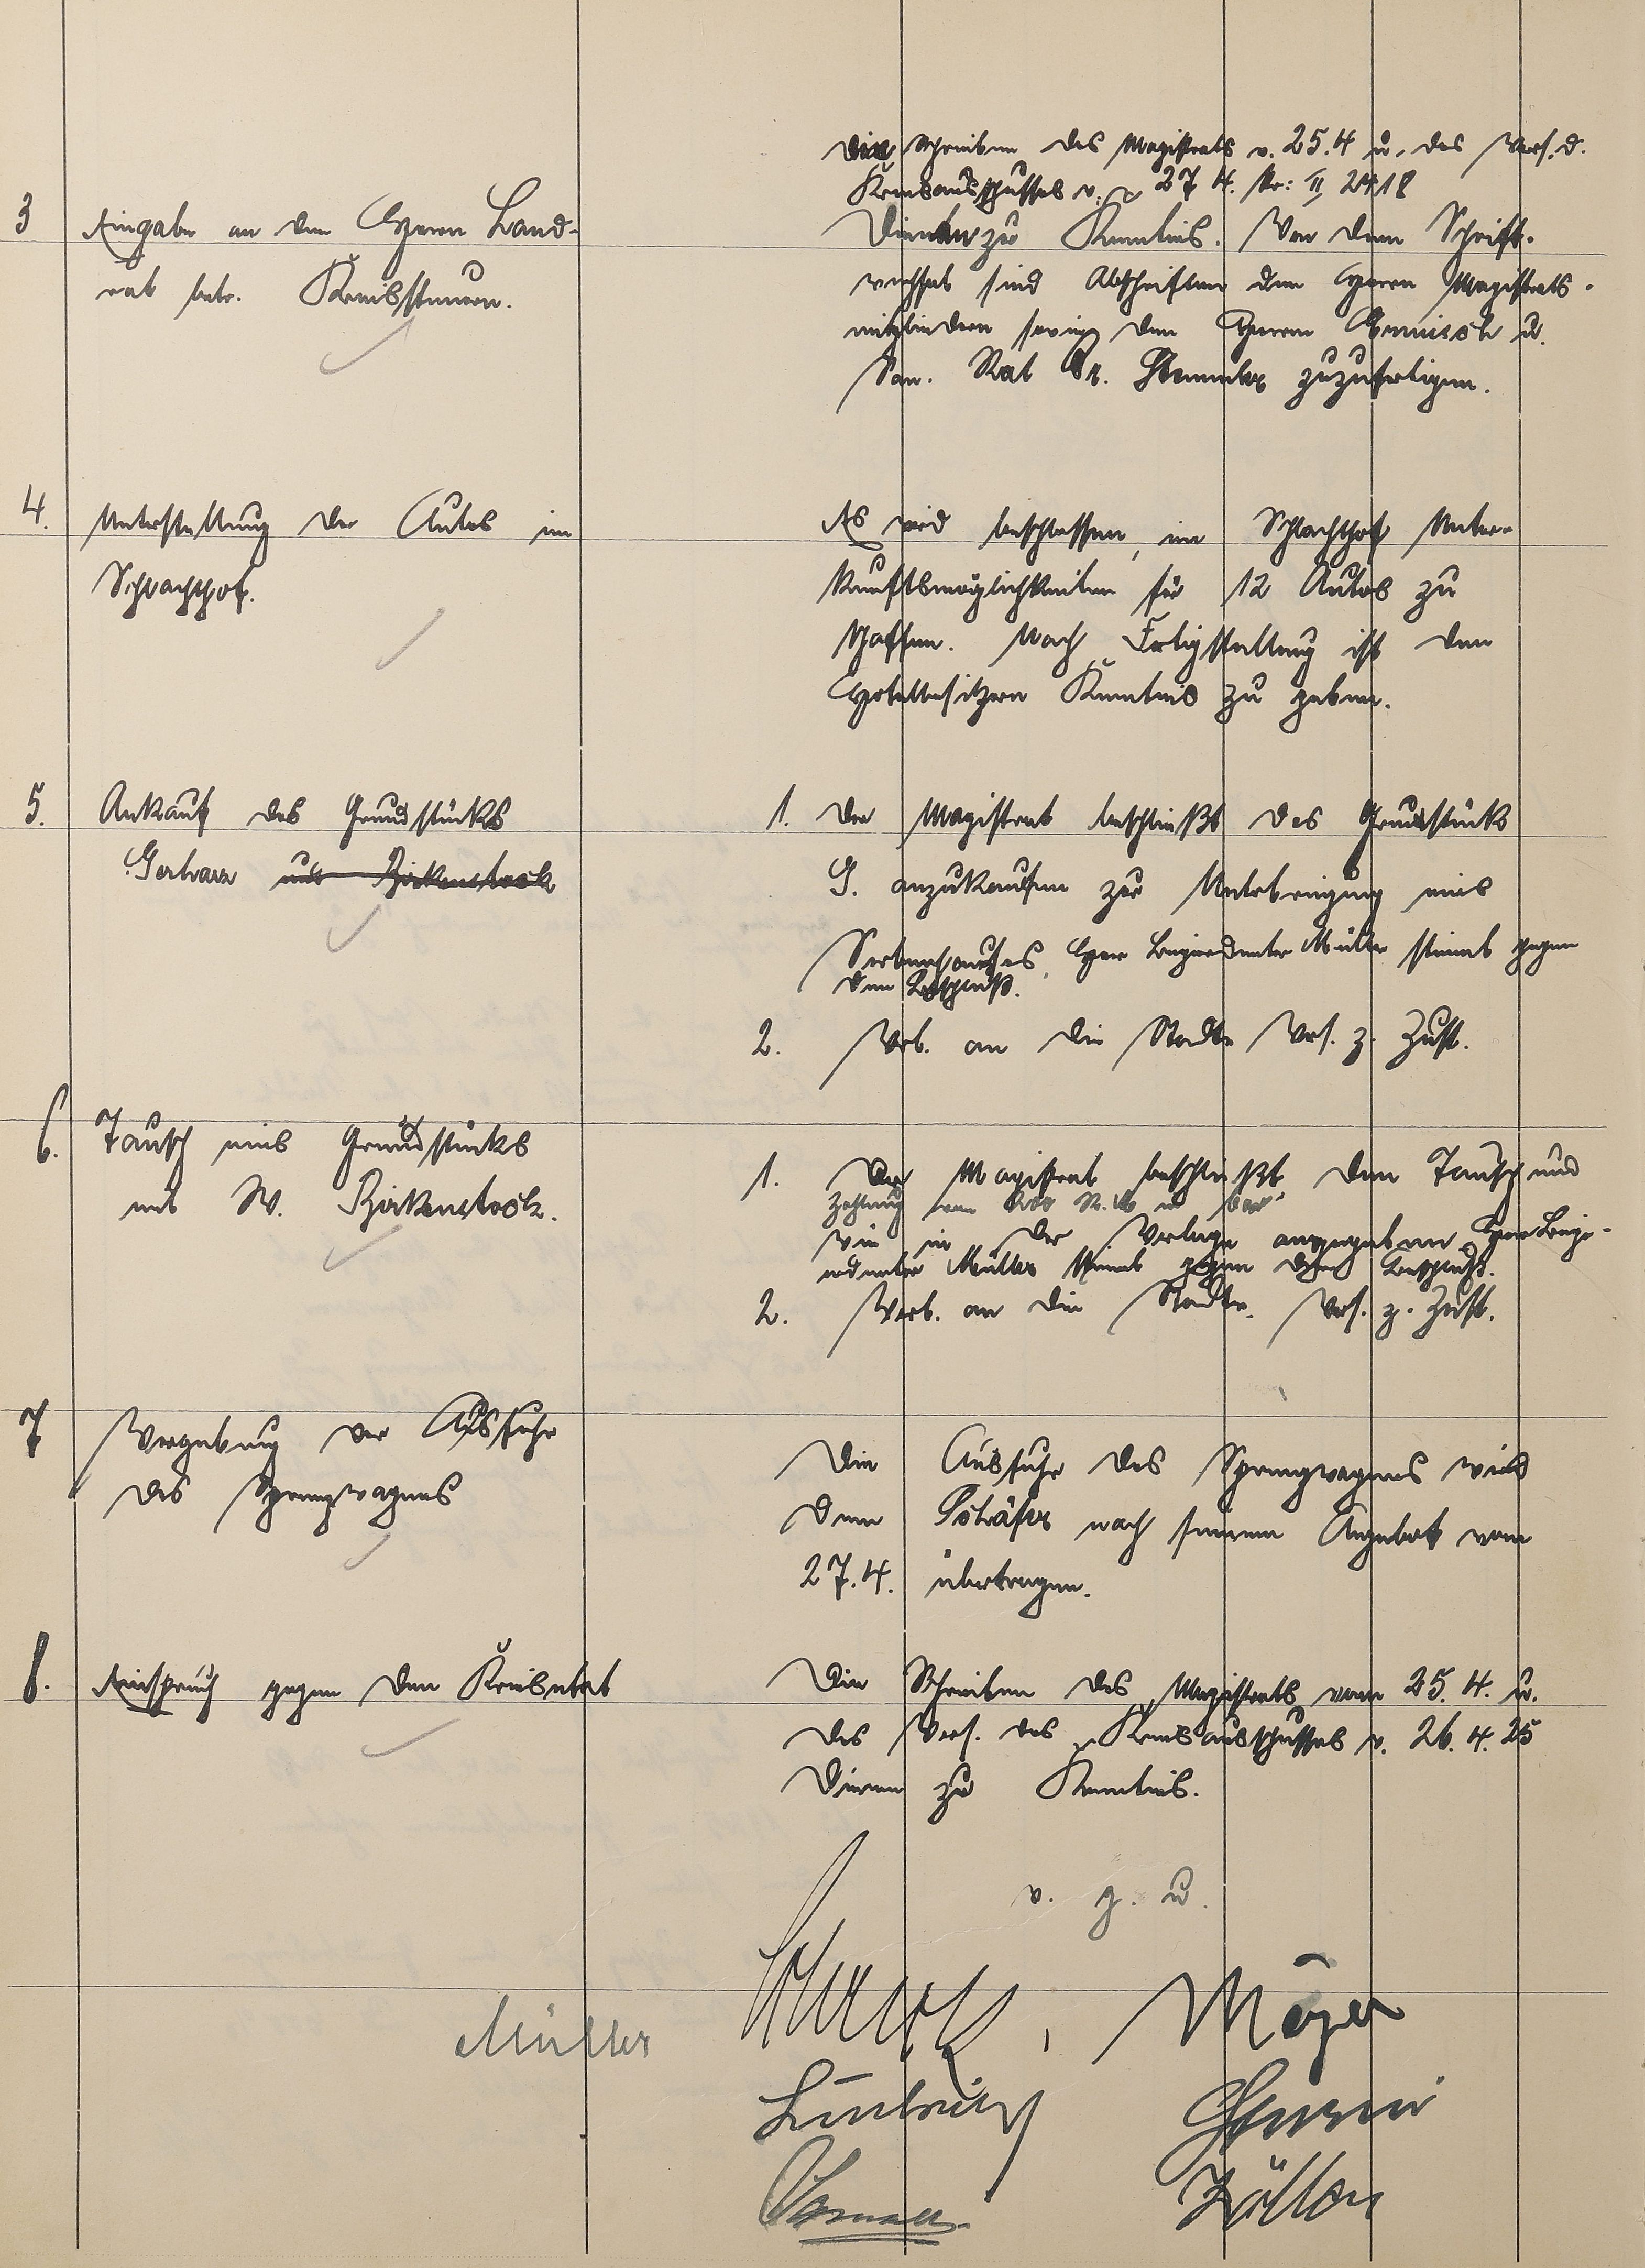 3 Eingabe an den Herrn Land-
rat betr. Kreissteuern.
Die Schreiben des Magistrats v. 25.4 u. des Vors. d.
Kreisausschusses v. 27 4. Nr: II 2418
Dienen zu Kenntnis. Von dem Schrift-
wechsel sind Abschriften den Herrn Magistrats-
mitgliedern sowie den Herrn u.
San. Rat Dr. Stemmler zuzufertigen.
4. Unterstellung der Autos im
Schlachthof.
Es wird beschlossen, im Schlachthof Unter-
kunftsmöglichkeiten für 12 Autos zu
schaffen. Nach Fertigstellung ist den
Hotelbesitzern Kenntnis zu geben.
5. Ankauf des Grundstücks
Gerharz und Birkenstock
1. Der Magistrat beschließt das Grundstück
G. anzukaufen zur Unterbringung eines
Herr Beigeordneter Müller stimmt gegen
den Beschluß.
2. Vorl. an die Stadtv. Vers. z. Zust.
6. Tausch eines Grundstücks
mit W. Birkenstock.
1. Der Magistrat beschließt den Tausch und
Zahlung von R.M. in bar
wie in der Vorlage angegeben Herr Beige-
ordneter Müller stimmt gegen den Beschluß.
2. Vorl. an die Stadtv. Vers. z. Zust.
7 Vergebung der Ausfuhr
des Sprengwagens
Die Ausfuhr des Sprengwagens wird
dem Schäfer nach seinem Angebot vom
27.4. übertragen.
8. Einspruch gegen den Kreisetat
Die Schreiben des Magistrats vom 25. 4. u.
des Vors. des Kreisausschusses v. 26. 4. 25
dienen zu Kenntnis.
v. g. u.
Müller
Mäyer